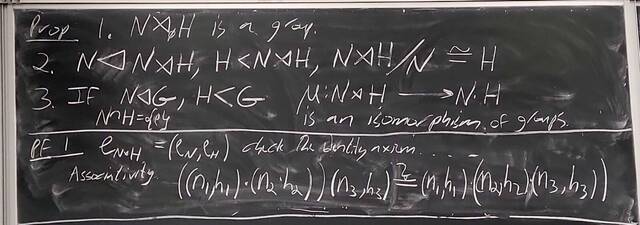 Prop 1. N⋊ᵩH is a group.
2. N◁N⋊H, H<N⋊H, N⋊H/N ≅ H
3. IF N◁G, H<G μ:N⋊H ⟶ N·H
N∩H={e} is an isomorphism of groups.
PF 1 e_{N⋊H} = (e_N, e_H) check the identity axiom. ...
Associativity. ((n₁,h₁)·(n₂,h₂))(n₃,h₃) ≟ (n₁,h₁)·((n₂,h₂)(n₃,h₃))